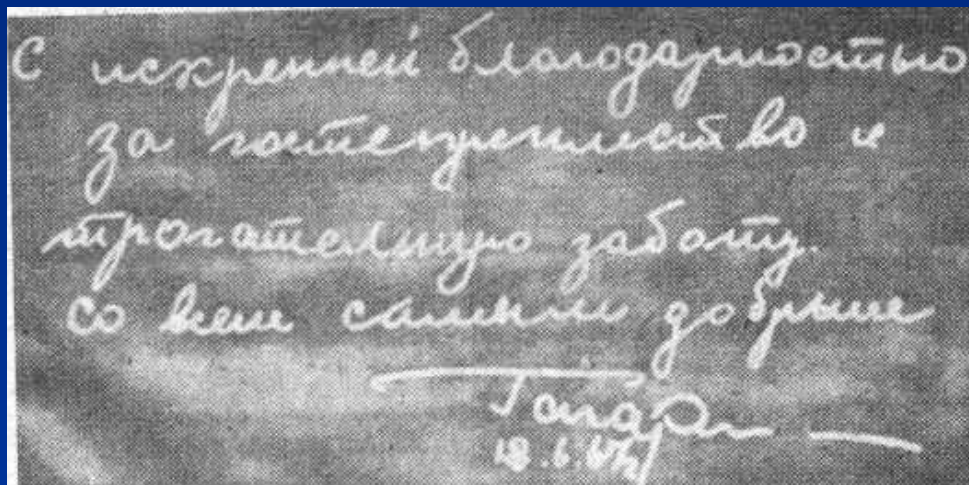 С искренней благодарностью
за гостеприимство и
трогательную заботу.
Со всем самым добрым
Гагарин